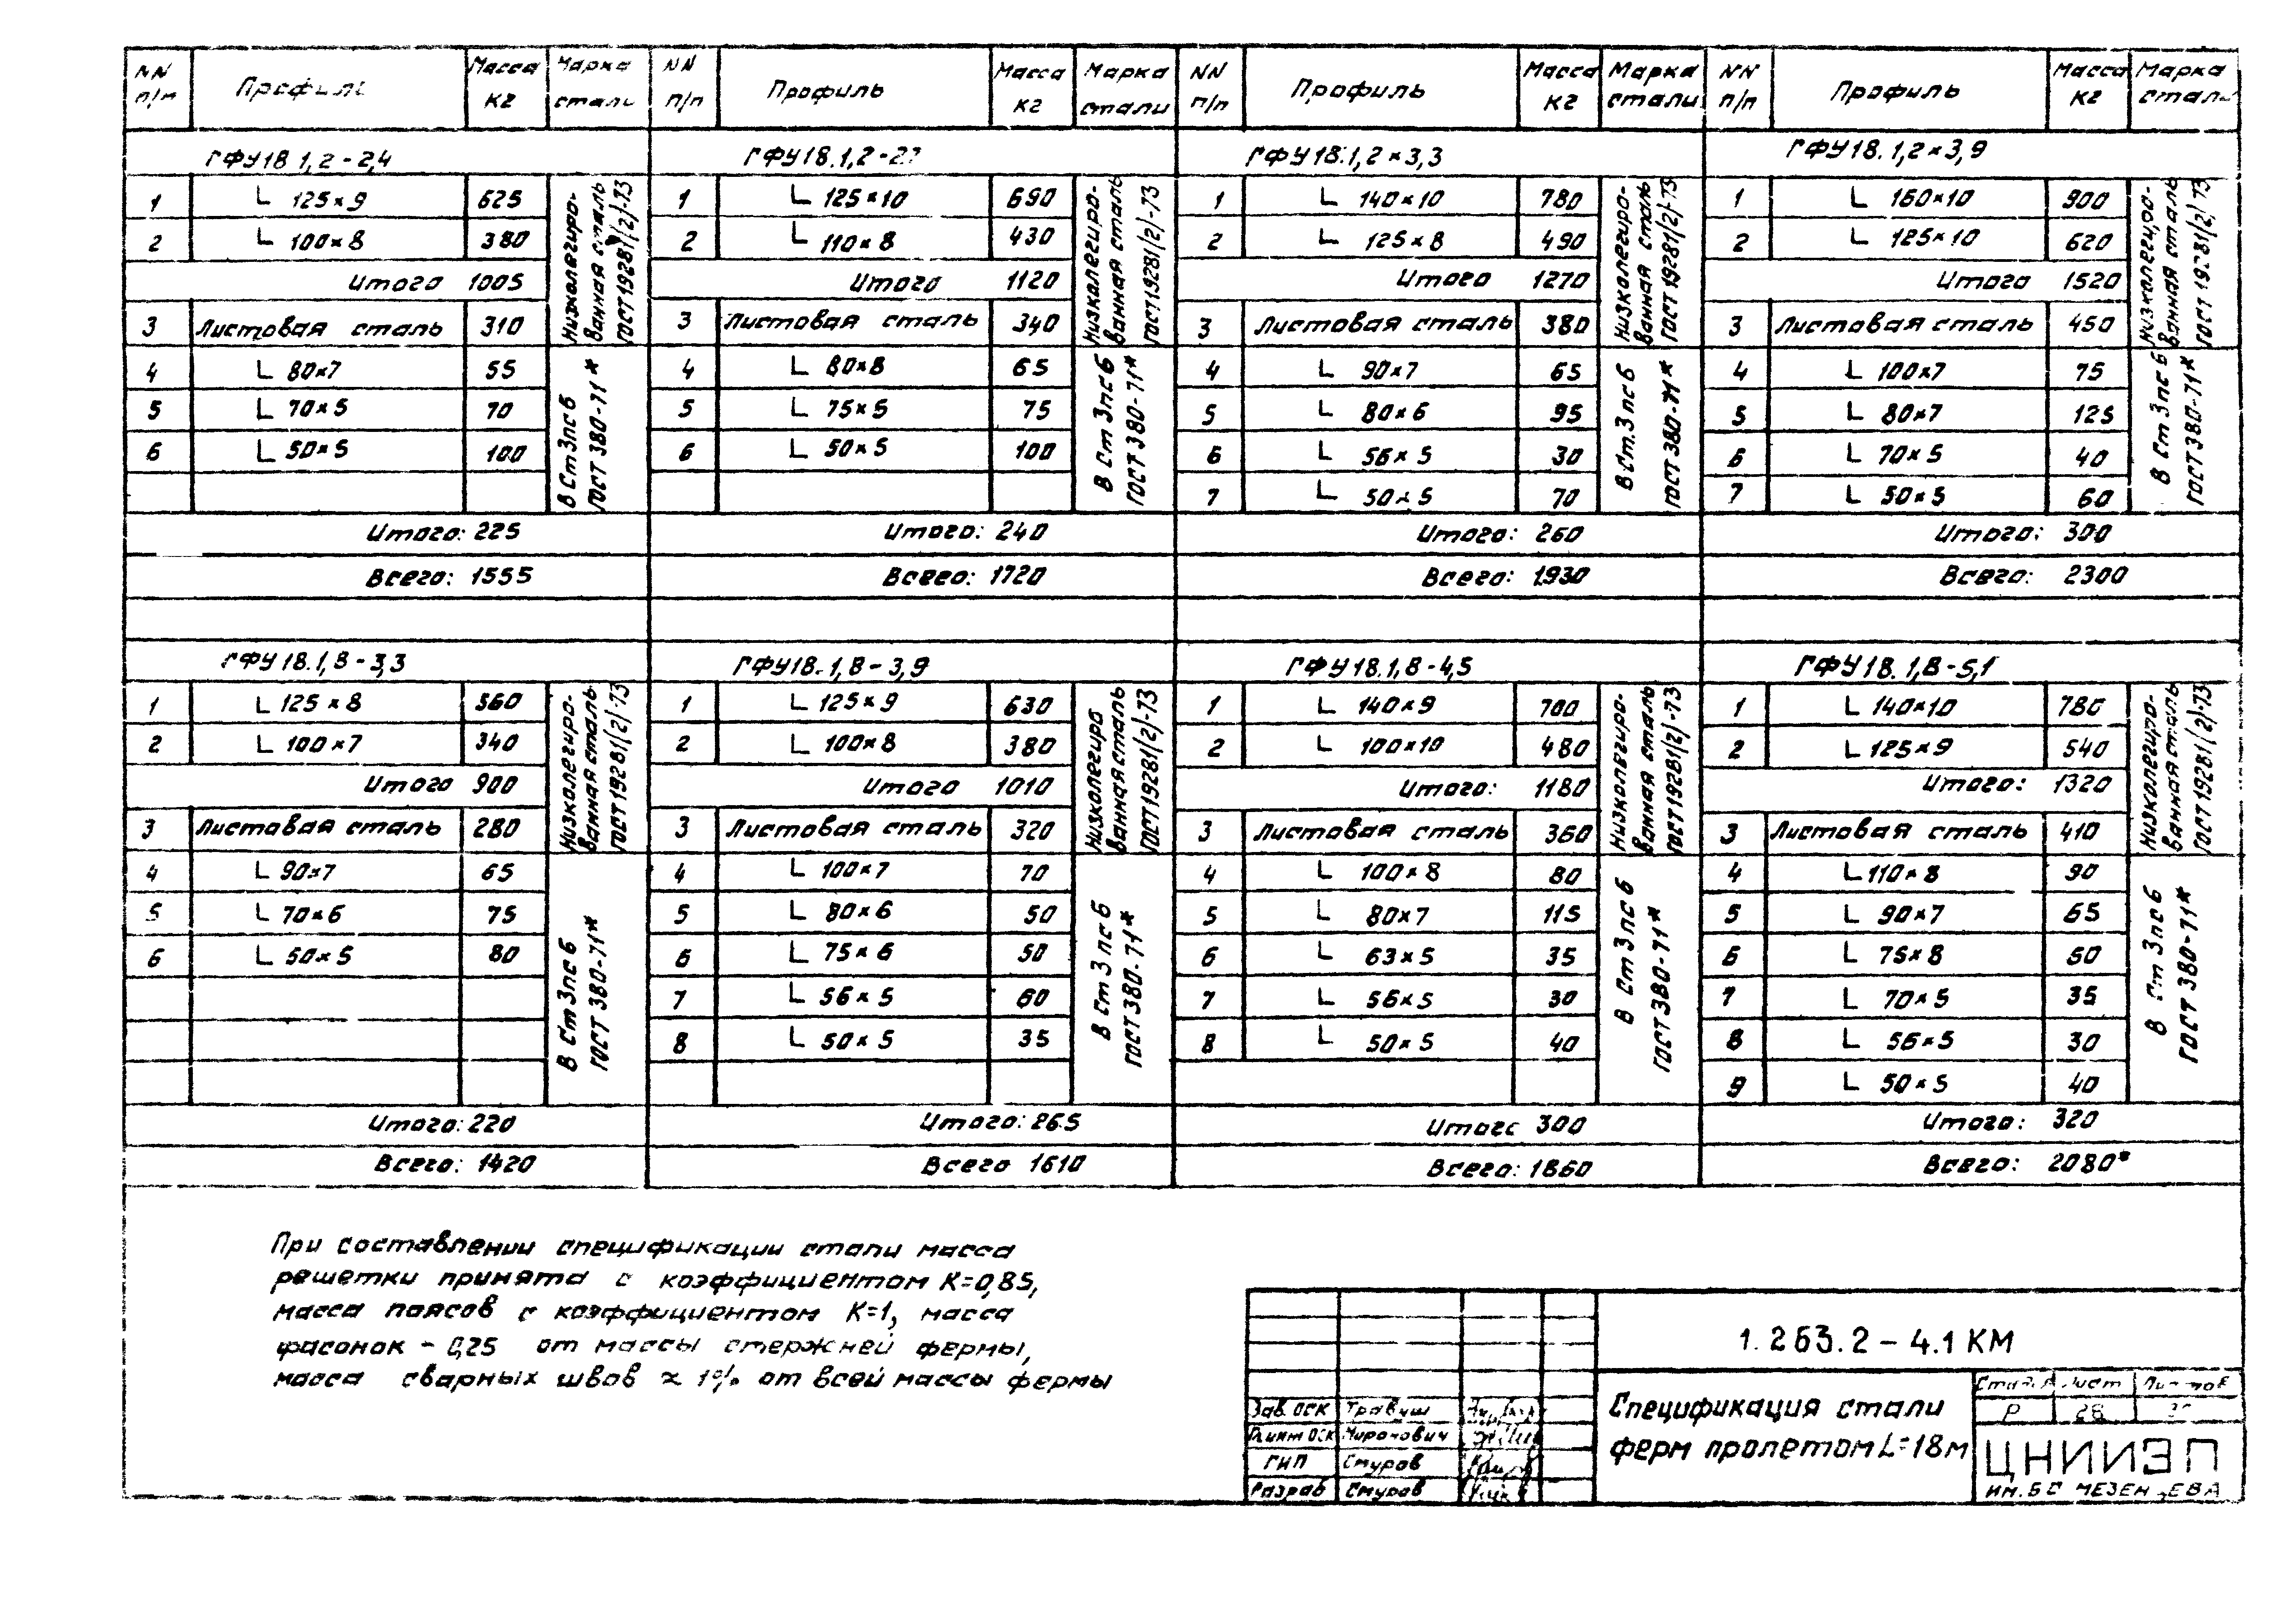 NN п/п Профиль Масса кг Марка стали NN п/п Профиль Масса кг Марка стали NN п/п Профиль Масса кг Марка стали NN п/п Профиль Масса кг Марка стали
ГФУ18 1,2-2,4
1 L 125×9 625
2 L 100×8 380
Итого 1005
3 Листовая сталь 310
Низколегиро-
ванная сталь
ГОСТ19281(2)-73
4 L 80×7 55
5 L 70×5 70
6 L 50×5 100
В Ст3пс6
ГОСТ 380-71*
Итого: 225
Всего: 1555
ГФУ18.1,2-2,7
1 L 125×10 690
2 L 110×8 430
Итого 1120
3 Листовая сталь 340
Низколегиро-
ванная сталь
ГОСТ19281(2)-73
4 L 80×8 65
5 L 75×5 75
6 L 50×5 100
В Ст 3пс6
ГОСТ 380-71*
Итого: 240
Всего: 1720
ГФУ18.1,2×3,3
1 L 140×10 780
2 L 125×8 490
Итого 1270
3 Листовая сталь 380
Низколегиро-
ванная сталь
ГОСТ 19281(2)-73
4 L 90×7 65
5 L 80×6 95
6 L 56×5 30
7 L 50×5 70
В Ст.3пс6
ГОСТ 380-71*
Итого: 260
Всего: 1930
ГФУ18.1,2×3,9
1 L 160×10 900
2 L 125×10 620
Итого 1520
3 Листовая сталь 450
Низколегиро-
ванная сталь
ГОСТ 19281(2)-73
4 L 100×7 75
5 L 80×7 125
6 L 70×5 40
7 L 50×5 60
В Ст 3пс6
ГОСТ 380-71*
Итого: 300
Всего: 2300
ГФУ18.1,8-3,3
1 L 125×8 560
2 L 100×7 340
Итого 900
3 Листовая сталь 280
Низколегиро-
ванная сталь
ГОСТ19281(2)-73
4 L 90×7 65
5 L 70×6 75
6 L 50×5 80
В Ст 3пс6
ГОСТ 380-71*
Итого: 220
Всего: 1420
ГФУ18.1,8-3,9
1 L 125×9 630
2 L 100×8 380
Итого 1010
3 Листовая сталь 320
Низколегиро
ванная сталь
ГОСТ19281(2)-73
4 L 100×7 70
5 L 80×6 50
6 L 75×6 50
7 L 56×5 60
8 L 50×5 35
В Ст 3пс6
ГОСТ 380-71*
Итого: 265
Всего 1610
ГФУ18.1,8-4,5
1 L 140×9 700
2 L 100×10 480
Итого: 1180
3 Листовая сталь 360
Низколегиро-
ванная сталь
ГОСТ19281(2)-73
4 L 100×8 80
5 L 80×7 115
6 L 63×5 35
7 L 56×5 30
8 L 50×5 40
В Ст 3пс6
ГОСТ 380-71*
Итого 300
Всего: 1860
ГФУ18.1,8-5,1
1 L 140×10 780
2 L 125×9 540
Итого: 1320
3 Листовая сталь 410
Низколегиро-
ванная сталь
ГОСТ19281(2)-73
4 L 110×8 90
5 L 90×7 65
6 L 75×8 50
7 L 70×5 35
8 L 56×5 30
9 L 50×5 40
В Ст 3пс6
ГОСТ 380-71*
Итого: 320
Всего: 2080*
При составлении спецификации стали масса
решетки принята с коэффициентом К=0,85,
масса поясов с коэффициентом К=1, масса
фасонок - 0,25 от массы стержней фермы,
масса сварных швов ≈ 1% от всей массы фермы
1.263.2-4.1 КМ
Зав. ОСК Травуш
Гл.инж ОСК Миронович
ГИП Смуров
Разраб Смуров
Спецификация стали
ферм пролетом L=18м
Стадия Лист Листов
Р 28
ЦНИИЭП
ИМ. Б С МЕЗЕНЦЕВА